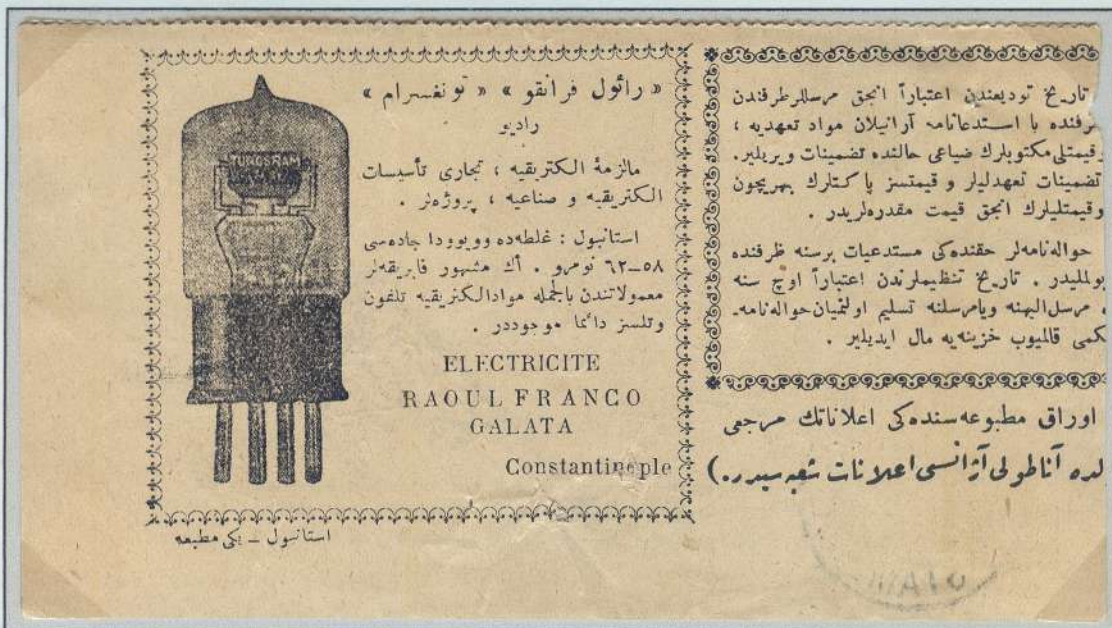 « رائول فرانقو » « تونغسرام »
راديو
مالزمهٔ الكتريقيه ، تجارى تأسيسات
الكتريقيه و صناعيه ، پروژه‌لر .
استانبول : غلطه‌ده وويوودا جاده‌سى
٥٨—٦٢ نومرو . اڭ مشهور فابريقه‌لر
معمولاتندن بالجمله موادالكتريقيه تلفون
وتلسز دائما موجوددر .
ELECTRICITE
RAOUL FRANCO
GALATA
Constantinople
TUNGSRAM
استانبول — يكى مطبعه
تاريخ توديعندن اعتباراً انجق مرسللر طرفندن
با استدعانامه آرانيلان مواد تعهديه ،
وقيمتلى مكتوبلرك ضياعى حالنده تضمينات ويريلير.
تضمينات تعهدليلر و قيمتسز پاكتلرك بهريچون
وقيمتليلرك انجق قيمت مقدره‌لريدر .
حواله‌نامه‌لر حقنده‌كى مستدعيات برسنه ظرفنده
. تاريخ تنظيملرندن اعتباراً اوچ سنه
مرسل اليهنه ويامرسلنه تسليم اولنميان حواله‌نامه‌‌ـ
قالميوب خزينه‌يه مال ايديلير .
اوراق مطبوعه‌سنده‌كى اعلاناتك مرجعى
آناطولى آژانسى اعلانات شعبه‌سيدر.)